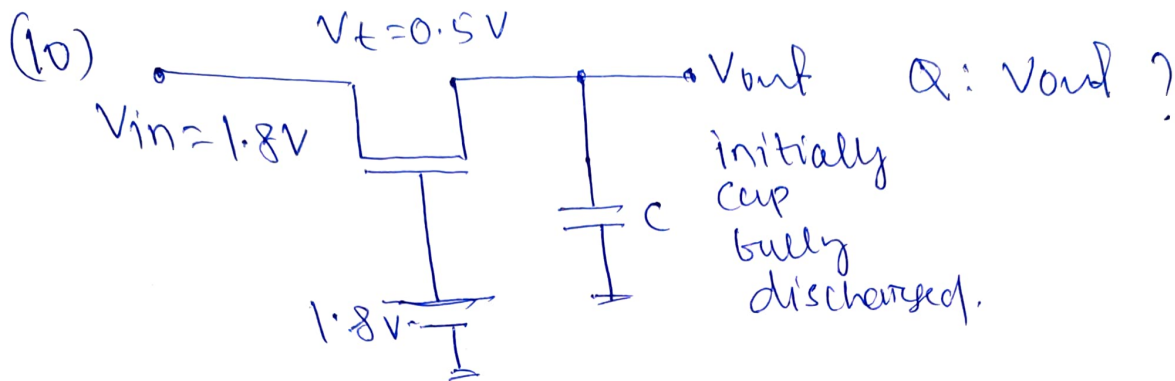 (10)
Vt=0.5V
Vin=1.8V
Vout
Q: Vout ?
initially
cap
fully
discharged.
C
1.8V